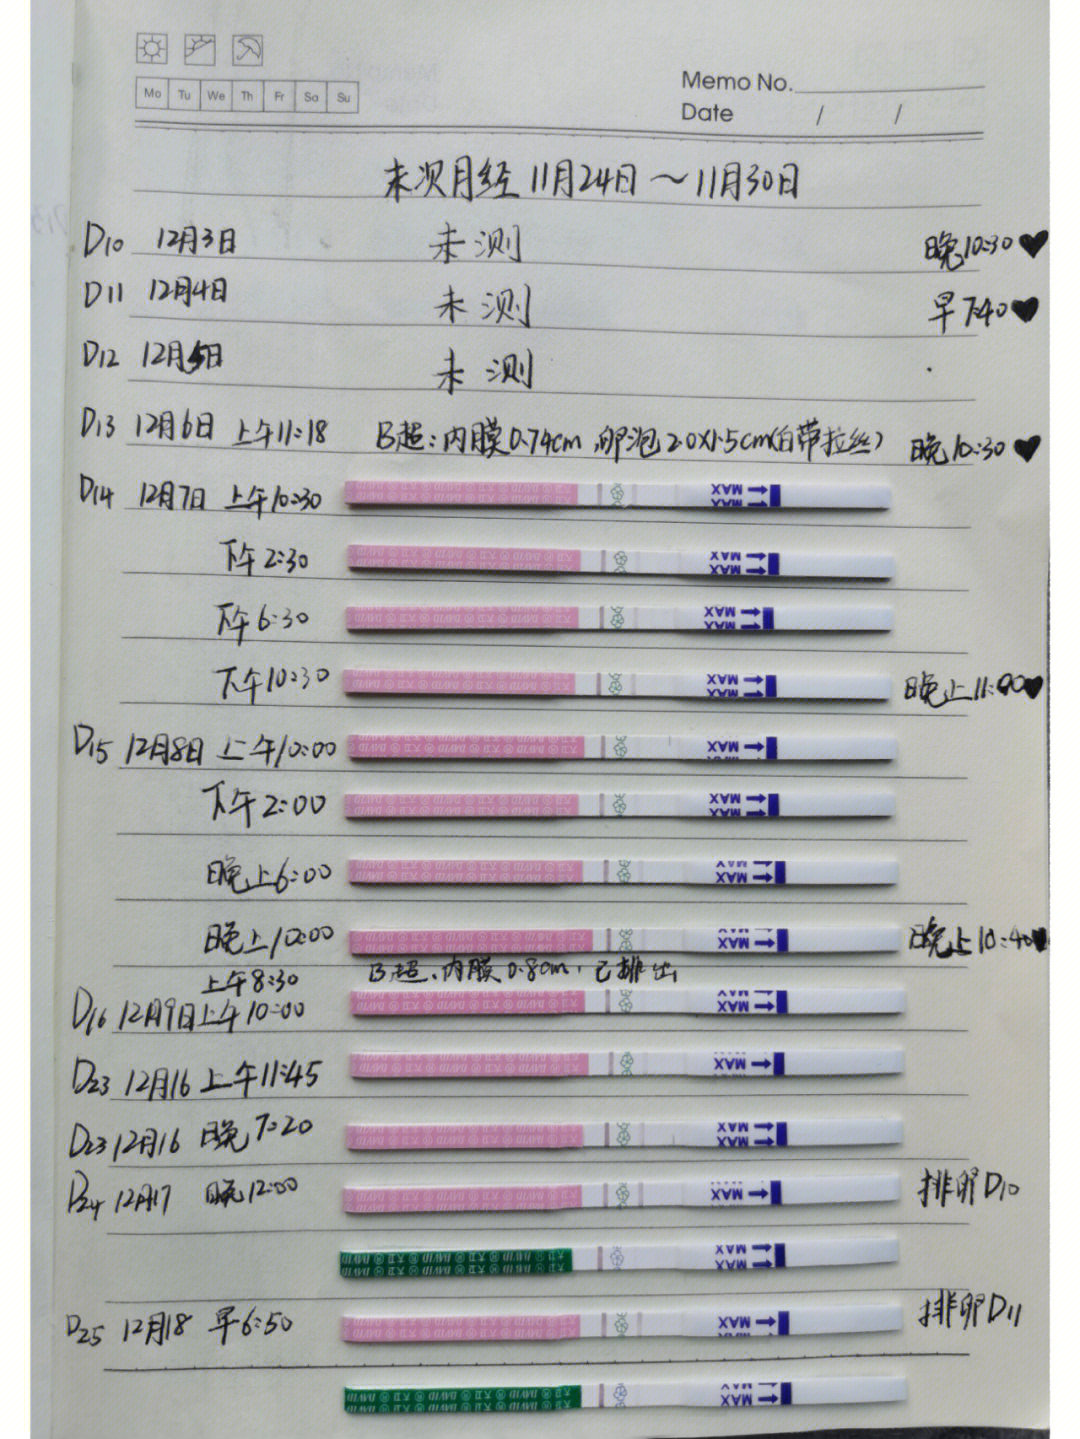 Mo Tu We Th Fr Sa Su
Memo No.
Date / /
末次月经 11月24日~11月30日
D10 12月3日 未测 晚10:30♥
D11 12月4日 未测 早7:40♥
D12 12月5日 未测
D13 12月6日 上午11:18 B超:内膜0.74cm 卵泡2.0X1.5cm(白带拉丝) 晚10:30♥
D14 12月7日 上午10:30 MAX
下午2:30 MAX
下午6:30 MAX
下午10:30 MAX 晚上11:00♥
D15 12月8日 上午10:00 MAX
下午2:00 MAX
晚上6:00 MAX
晚上10:00 MAX 晚上10:40♥
上午8:30 B超、内膜0.8cm,已排出
D16 12月9日上午10:00 MAX
D23 12月16 上午11:45 MAX
D23 12月16 晚7:20 MAX
D24 12月17 晚12:00 MAX 排卵D10
DAVID 大卫 MAX
D25 12月18 早6:50 MAX 排卵D11
DAVID 大卫 MAX